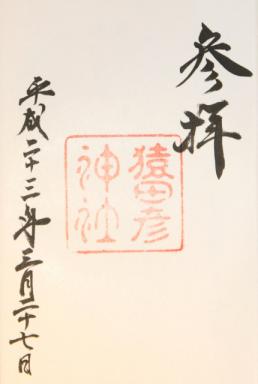 参拜
猿田彦
神社
平成二十三年三月二十七日